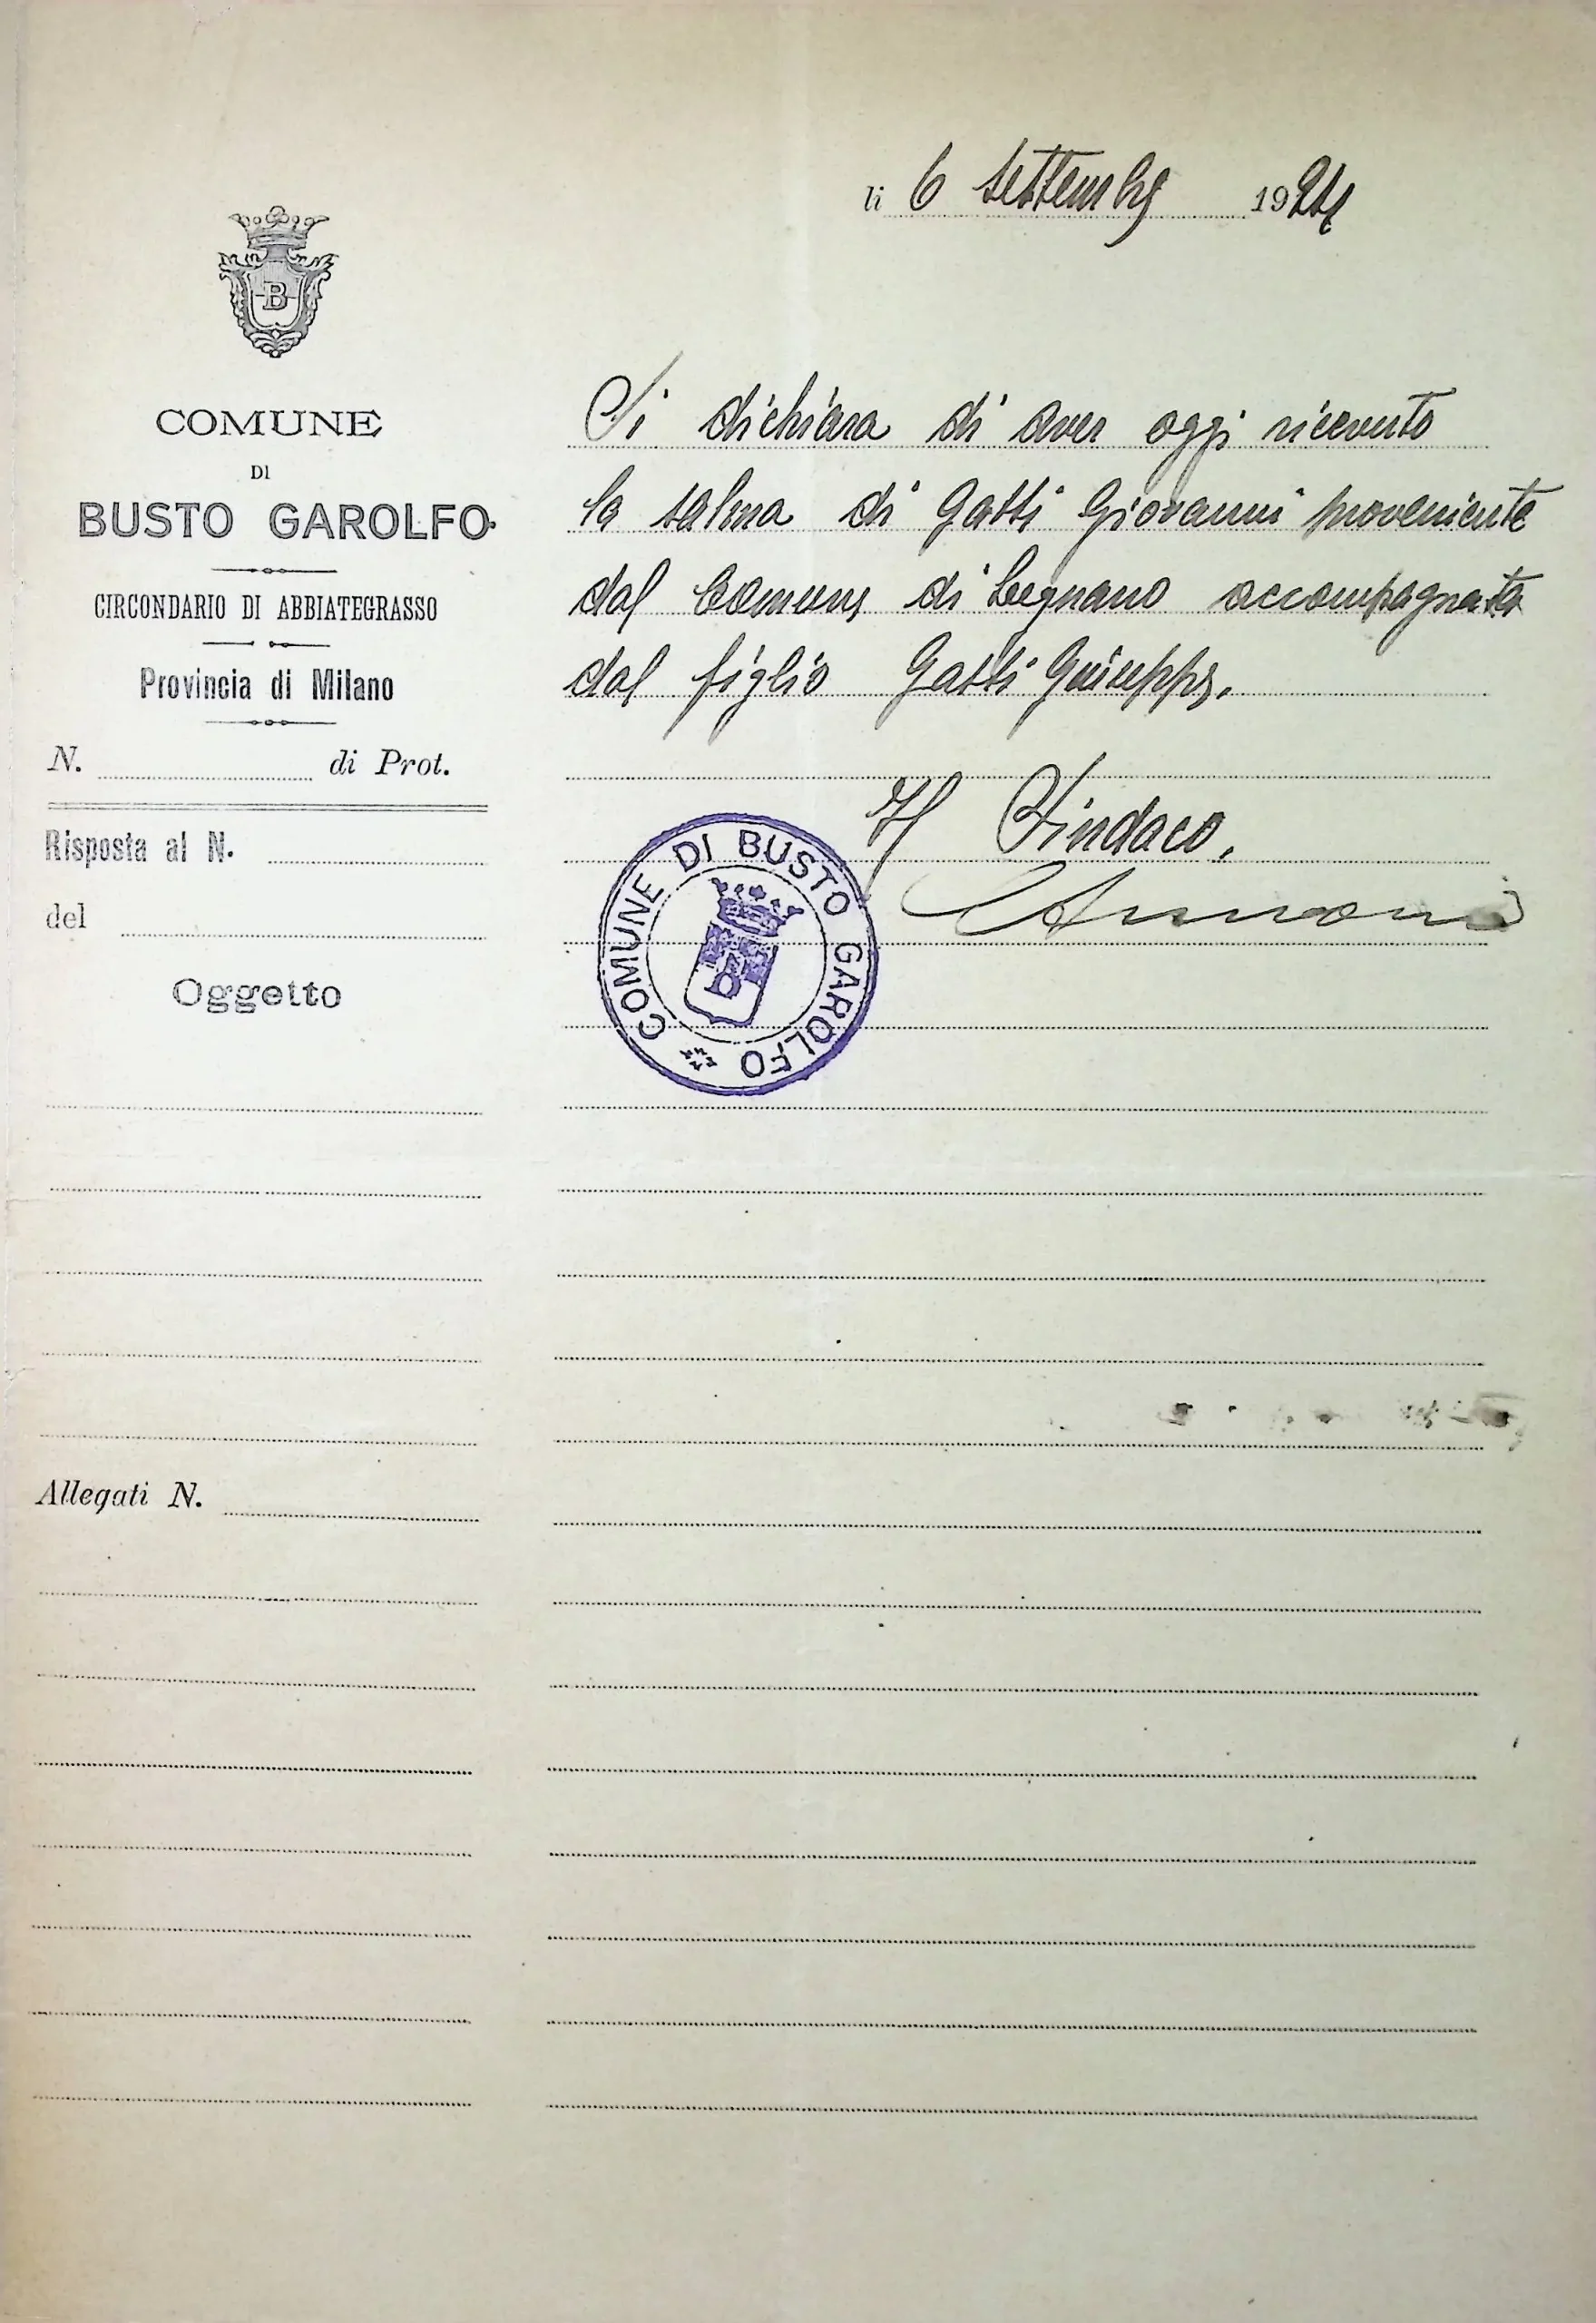 li 6 Settembre 1924
B
COMUNE
DI
BUSTO GAROLFO
CIRCONDARIO DI ABBIATEGRASSO
Provincia di Milano
N. di Prot.
Risposta al N.
del
Oggetto
Allegati N.
Si dichiara di aver oggi ricevuto
la salma di Gatti Giovanni proveniente
dal Comune di Legnano accompagnata
dal figlio Gatti Giuseppe.
Il Sindaco,
Annoni
COMUNE DI BUSTO GAROLFO